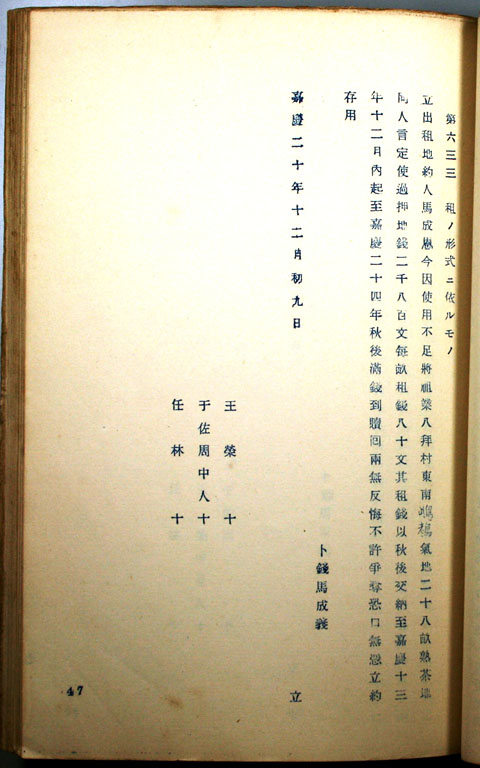 第六三三 租ノ形式ニ依ルモノ
立出租地約人馬成 今因使用不足將祖業八拜村東南 氣地二十八畝熟茶地
同人言定使過押地錢二千八百文每畝租錢八十文其租錢以秋後交納至嘉慶十三
年十二月內起至嘉慶二十四年秋後滿錢到贖回兩無反悔不許爭奪恐口無憑立約
存用
卜錢馬成義
嘉慶二十年十二月初九日 立
王榮 十
于佐周中人十
任林 十
47